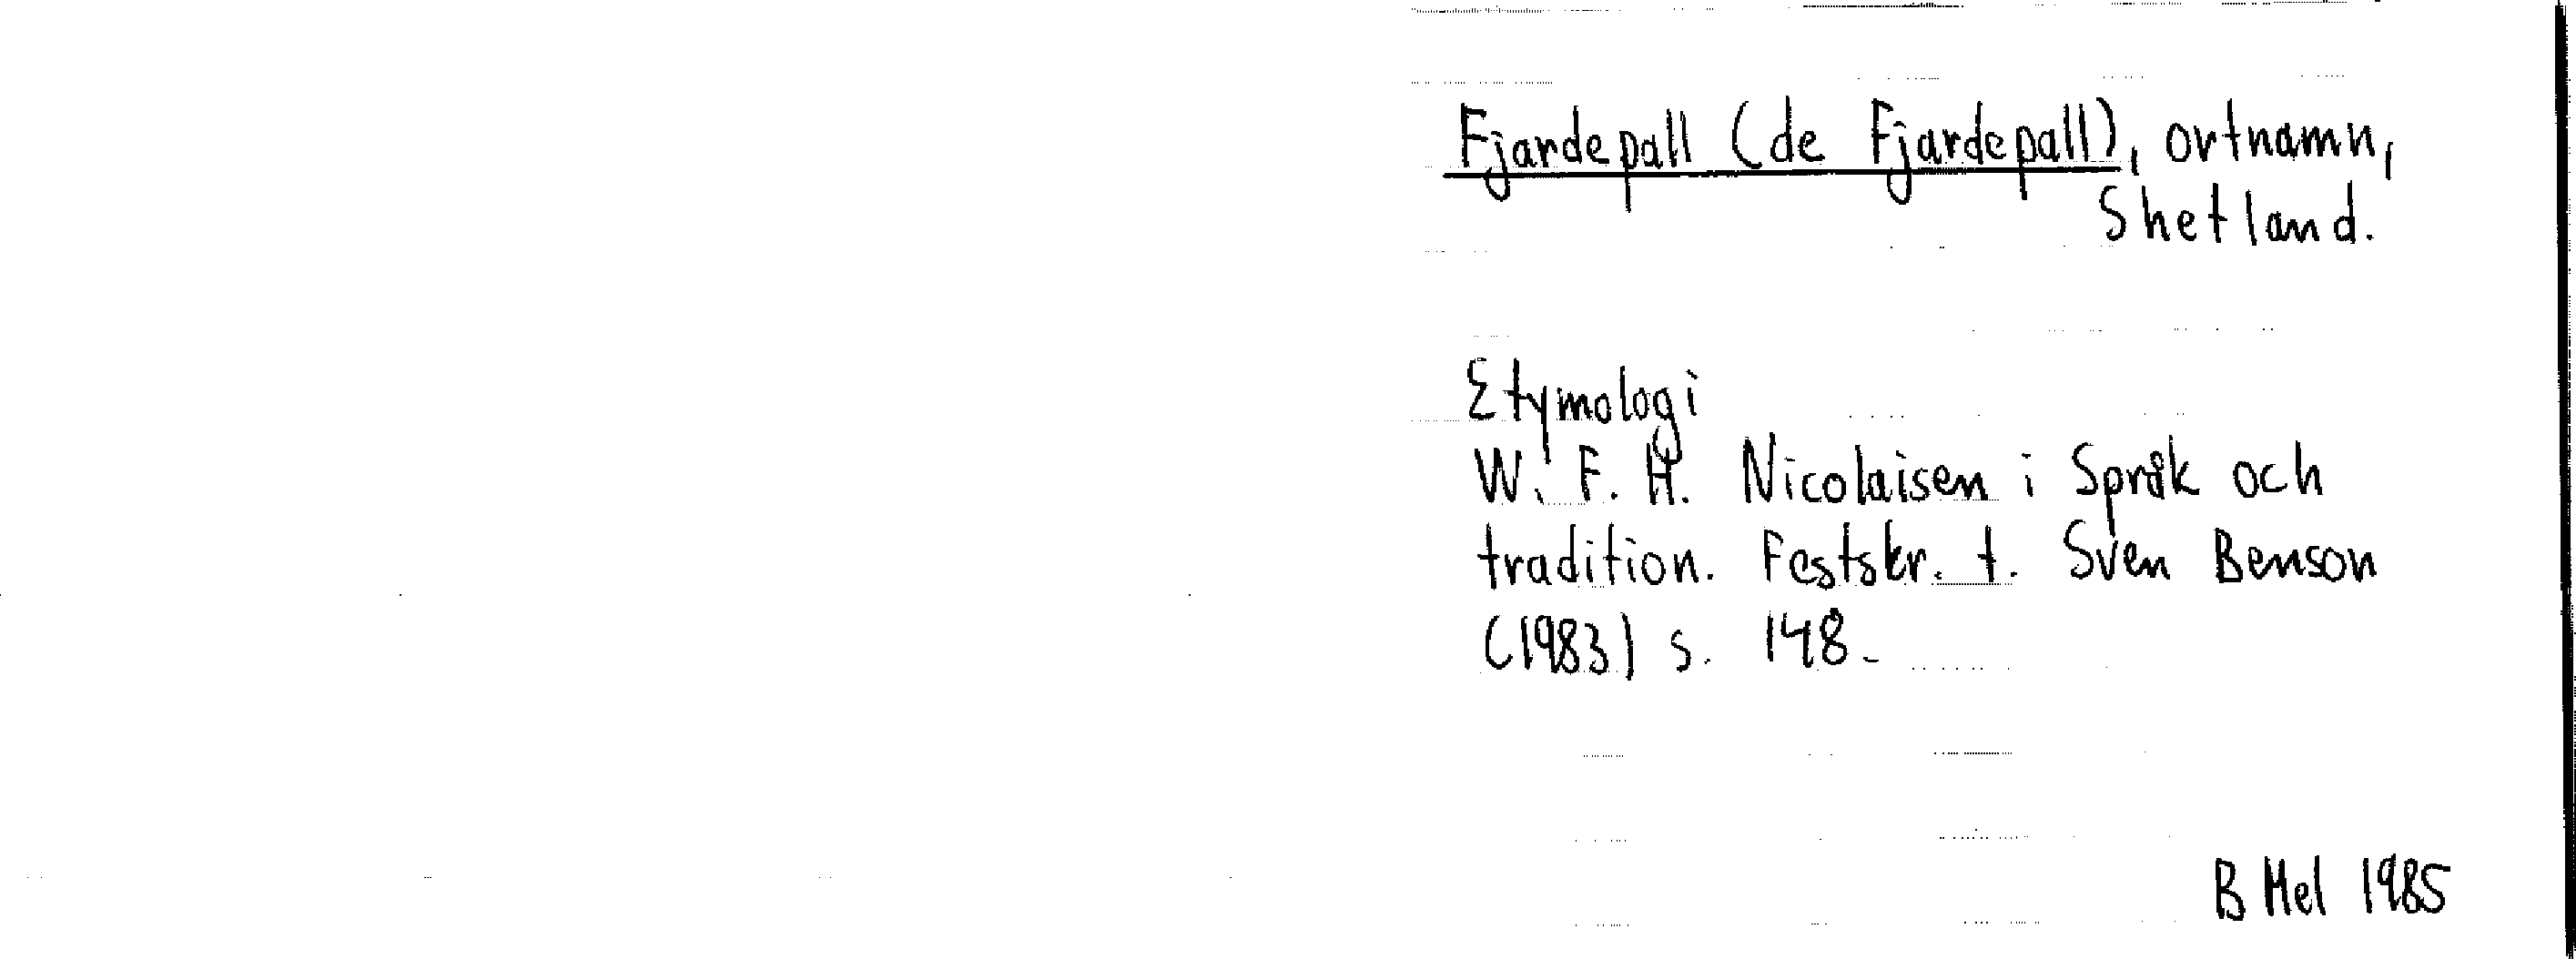 Fjardepall (de Fjardepall), ortnamn,
Shetland.
Etymologi
W. F. H. Nicolaisen i Språk och
tradition. Festskr. t. Sven Benson
(1983) s. 148.
B Mel 1985